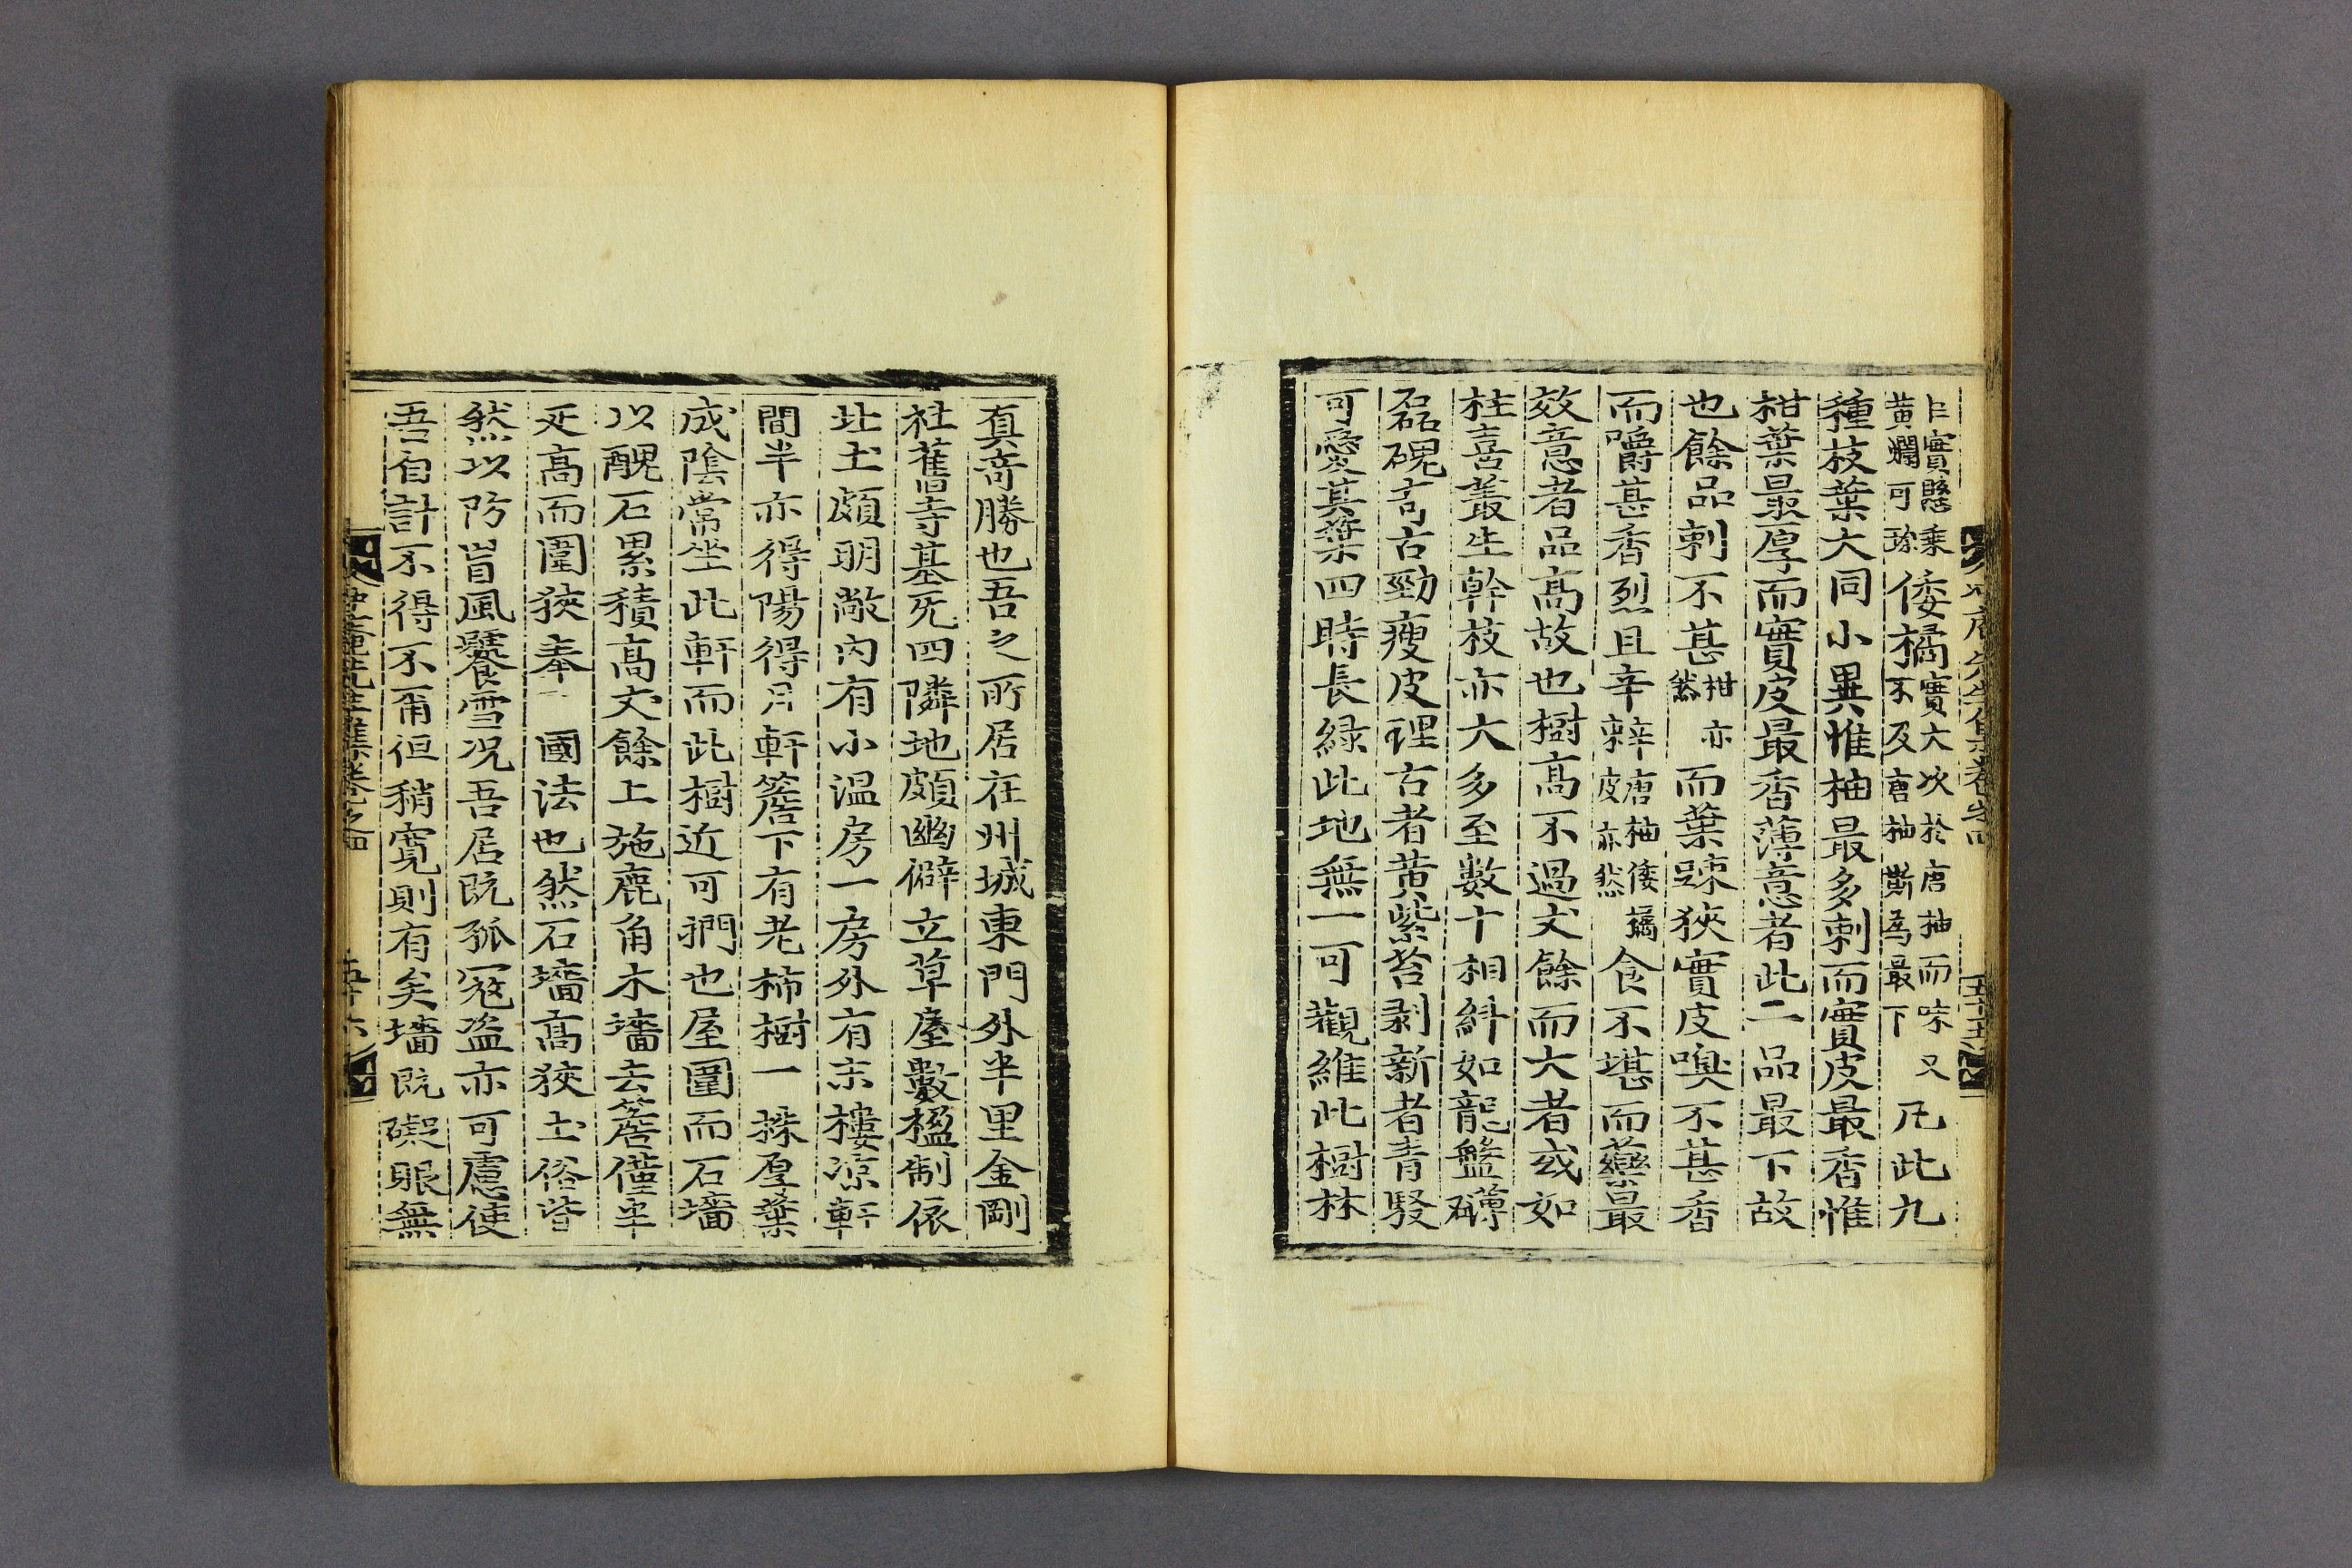 實懸乗
黄爛可珎倭橘實大次於唐柚而味又不及唐柚斯爲最下凡此九
種枝葉大同小異惟柚最多刺而實皮最香惟
柑葉最厚而實皮最香薄意者此二品最下故
也餘品刺不甚柑亦然而葉踈狹實皮嗅不甚香
而嚼甚香烈且辛辣唐柚倭橘皮亦然食不堪而藥最
效意者品高故也樹高不過丈餘而大者或如
柱喜叢生幹枝亦大多至數十相紏如龍盤礴
磊磈奇古勁瘦皮理古者黄紫苔剥新者青駁
可愛其葉四時長緑此地無一可觀維此樹林
真奇勝也吾之所居在州城東門外半里金剛
社舊寺基死四隣地頗幽僻立草屋數楹制依
北土頗明敞内有小温房一房外有木樓凉軒
間半亦得陽得月軒簷下有老柿樹一操厚葉
成陰常坐此軒而此樹近可捫也屋圍而石墻
以醜石累積高丈餘上施鹿角木墻去簷僅半
延高而圍狹奉 國法也然石墻高狹土俗皆
然以防盲風饕雪况吾居旣孤寇盜亦可慮使
吾自計不得不甭但稍寬則有矣墻旣礙眼無